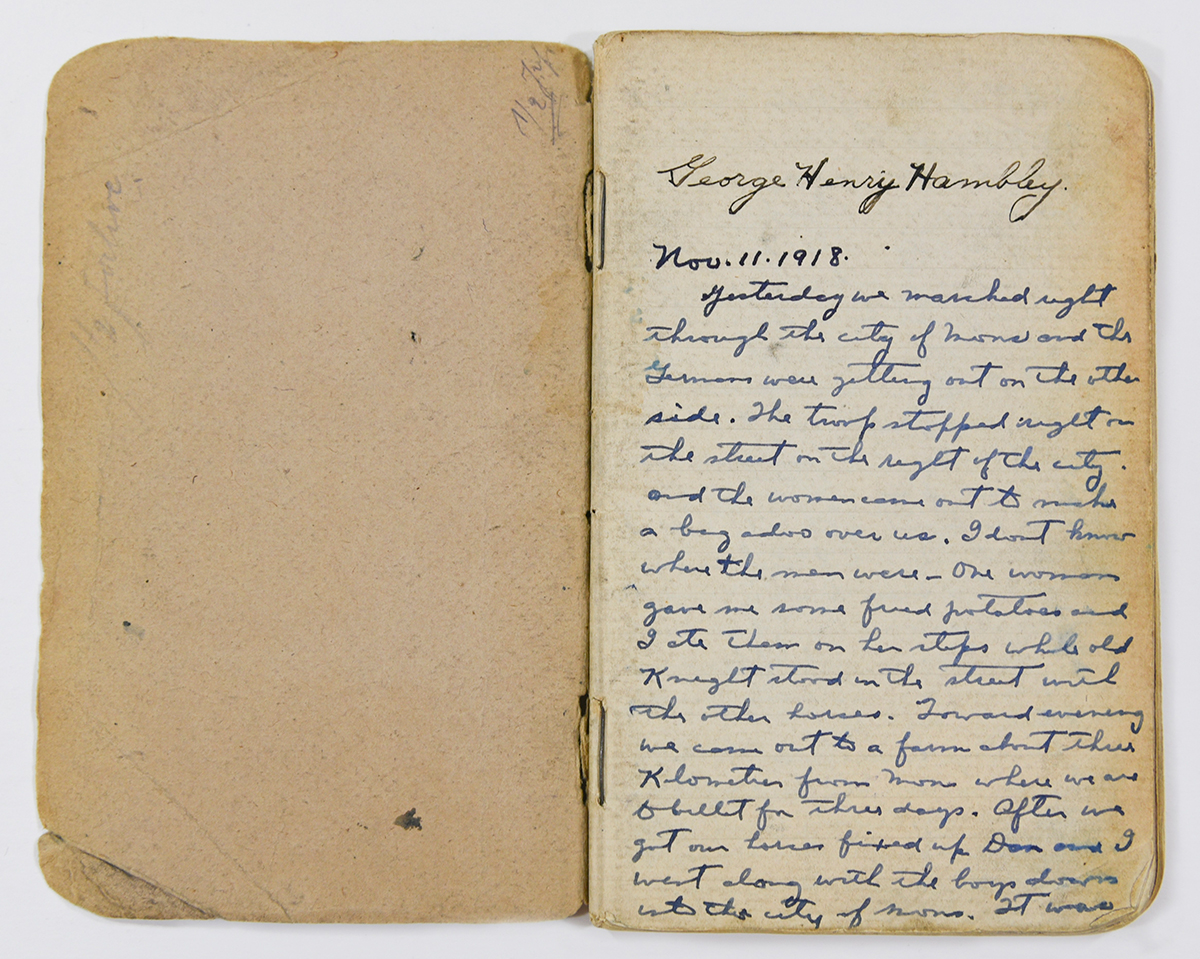 George Henry Hambley.
Nov. 11. 1918.
Yesterday we marched right
through the city of Mons and the
Germans were getting out on the other
side. The troop stopped right on
the street on the right of the city.
and the women came out to make
a big adoo over us. I dont know
where the men were – One woman
gave me some fried potatoes and
I ate them on her steps while old
Knight stood in the street with
the other horses. Toward evening
we came out to a farm about three
Kilometres from Mons where we are
to billet for three days. After we
got our horses fixed up Dan and I
went along with the boys down
into the city of Mons. It was